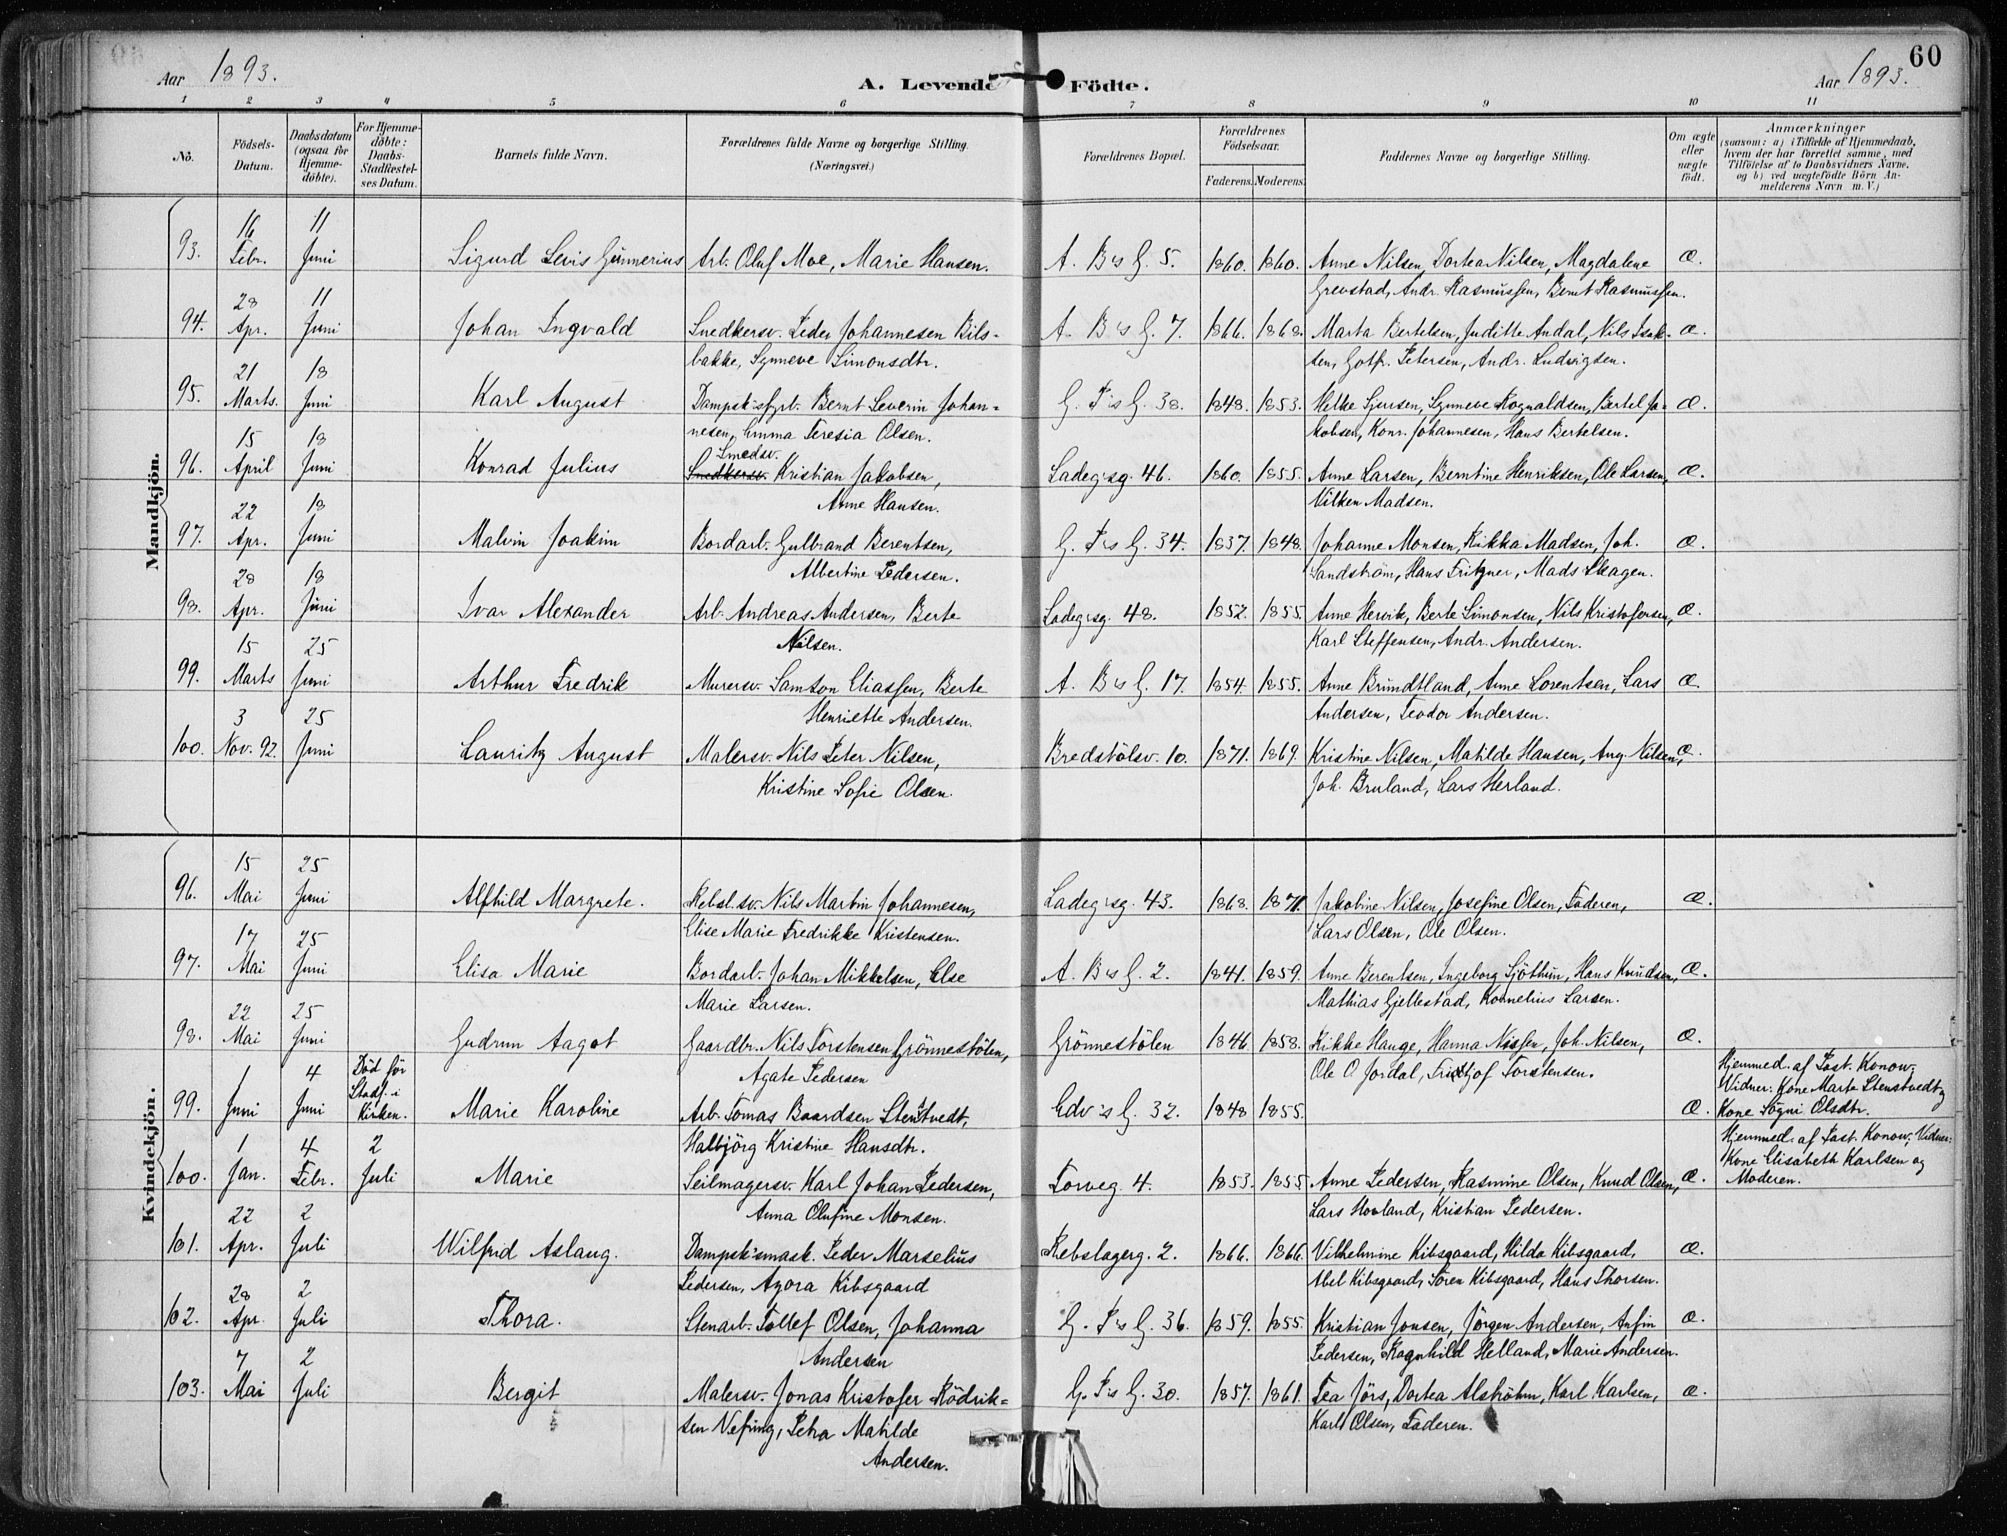 60
Aar 1893.
A. Levende Födte.
Aar 1893.
1 2 3 4 5 6 7 8 9 10 11
No.
Födsels-Datum.
Daabsdatum (ogsaa for Hjemme-döbte).
For Hjemme-döbte: Daabs-Stadfæstel-ses Datum.
Barnets fulde Navn.
Forældrenes fulde Navne og borgerlige Stilling. (Næringsvei.)
Forældrenes Bopæl.
Forældrenes Födselsaar.
Faderens. Moderens.
Faddernes Navne og borgerlige Stilling.
Om ægte eller uægte födt.
Anmærkninger
(saasom: a) i Tilfælde af Hjemmedaab, hvem der har forrettet samme, med Tilföielse af to Daabsvidners Navne, og b) ved uægtefödte Börn An-melderens Navn m. V.)
Mandkjön.
93. 16 Febr. 11 Juni Sigurd Levis Gunnerius Arb. Oluf Moe, Marie Hansen. A. B's G. 5. 1860. 1860. Anne Nilsen, Dortea Nilsen, Magdalene Æ.
Grevstad, Andr. Rasmussen, Bernt Rasmussen.
94. 28 Apr. 11 Juni Johan Ingvald Snedkersv. Peder Johannesen Bils- A. B's G. 7. 1866. 1868. Marta Bertelsen, Juditte Andal, Nils Isak- Æ.
bakke, Synneve Simonsdtr. sen, Gotfr. Petersen, Andr. Ludvigsen.
95. 21 Marts. 18 Juni Karl August Dampsk:sfyrb. Bernt Severin Johan- G. P's G. 38. 1848. 1853. Helke Sjursen, Synneve Rognaldsen, Bertel Ja- Æ.
nesen, Emma Teresia Olsen. kobsen, Konr. Johannesen, Hans Bertelsen.
96. 15 April 18 Juni Konrad Julius Smedsv. Snedkersv. Kristian Jakobsen, Ladeg:sg. 46. 1860. 1855. Anne Larsen, Berntine Henriksen, Ole Larsen, Æ.
Anne Hansen. Vilken Madsen.
97. 22 Apr. 18 Juni Malvin Joakim Bordarb. Gulbrand Berentsen, G. P's G. 34. 1837. 1848. Johanne Monsen, Rikka Madsen, Joh. Æ.
Albertine Pedersen. Sandström, Hans Fritzner, Mads Skagen.
98. 28 Apr. 18 Juni Ivar Alexander Arb. Andreas Andersen, Berte Ladeg:sg. 48. 1852. 1855. Anne Hervik, Berte Simonsen, Nils Kristofersen, Æ.
Nilsen. Karl Steffensen, Andr. Andersen.
99. 15 Marts 25 Juni Arthur Fredrik Murersv. Samson Eliassen, Berte A. B's G. 17. 1854. 1855. Anne Brundtland, Anne Lorentsen, Lars Æ.
Henriette Andersen. Andersen, Teodor Andersen.
100. 3 Nov. 92. 25 Juni Lauritz August Malersv. Nils Peter Nilsen, Bredstölsv. 10. 1871. 1869. Kristine Nilsen, Matilde Hansen, Aug. Nilsen, Æ.
Kristine Sofie Olsen. Joh. Bruland, Lars Herland.
Kvindekjön.
96. 15 Mai 25 Juni Alfhild Margrete. Rebsl.sv. Nils Martin Johannesen, Ladeg:sg. 43. 1868. 1871. Jakobine Nilsen, Josefine Olsen, Faderen, Æ.
Elise Marie Fredrikke Kristensen. Lars Olsen, Ole Olsen.
97. 17 Mai 25 Juni Elisa Marie Bordarb. Johan Mikkelsen, Else A. B's G. 2. 1841. 1859. Anne Berentsen, Ingeborg Sjöthun, Hans Knudsen, Æ.
Marie Larsen. Mathias Gjellestad, Kornelius Larsen.
98. 22 Mai 25 Juni Gudrun Aagot Gaardbr. Nils Torstensen Grönnestölen, Grönnestölen 1846. 1858. Rikke Hauge, Hanna Nissen, Joh. Nilsen, Æ.
Agate Pedersen Ole O. Jordal, Fridtjof Torstensen.
99. 1 Juni 4 Juni Död för Stadf. i Kirken. Marie Karoline Arb. Tomas Baardsen Stenstvedt, Edv's G. 32. 1848 1855. Æ. Hjemmed. af Past. Konow. Vidner: Kone Marta Stenstvedt og Kone Sögni Olsdtr.
Halbjörg Kristine Hansdtr.
100. 1 Jan. 4 Febr. 2 Juli Marie Seilmagersv. Karl Johan Pedersen, Torveg. 4. 1853. 1855 Anne Pedersen, Rasmine Olsen, Knud Olsen, Æ. Hjemmed. af Past. Konow. Vidner: Kone Elisabeth Karlsen og Moderen.
Anna Olufine Monsen. Lars Hovland, Kristian Pedersen.
101. 22 Apr. 2 Juli Wilfrid Aslaug. Dampsk:smask. Peder Marselius Rebslagerg. 2. 1866. 1866. Vilhelmine Kibsgaard, Hilda Kibsgaard, Æ.
Pedersen, Agora Kibsgaard Abel Kibsgaard, Sören Kibsgaard, Hans Thorsen.
102. 28 Apr. 2 Juli Thora. Stenarb. Tollef Olsen, Johanna G. P's G. 36. 1859. 1855. Kristian Jonsen, Jörgen Andersen, Anfin Æ.
Andersen Pedersen, Ragnhild Helland, Marie Andersen.
103. 7 Mai 2 Juli Bergit Malersv. Jonas Kristofer Rödrik- G. P's G. 30. 1857. 1861. Tea Jörs, Dortea Alströhm, Karl Karlsen, Æ.
sen Nefring, Petra Matilde Karl Olsen, Faderen.
Andersen.